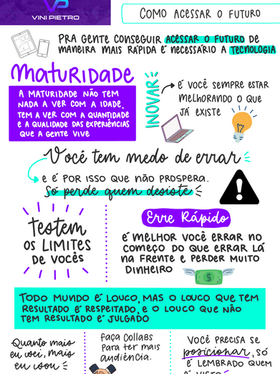 VP
VINI PIETRO
COMO ACESSAR O FUTURO
PRA GENTE CONSEGUIR ACESSAR O FUTURO DE
MANEIRA MAIS RÁPIDA É NECESSÁRIO A TECNOLOGIA
MATURIDADE
A MATURIDADE NÃO TEM
NADA A VER COM A IDADE,
TEM A VER COM A QUANTIDADE
E A QUALIDADE DAS EXPERIÊNCIAS
QUE A GENTE VIVE
INOVAR
É VOCÊ SEMPRE ESTAR
MELHORANDO O QUE
JÁ EXISTE
Você tem medo de errar
E É POR ISSO QUE NÃO PROSPERA.
Só perde quem desiste
Testem
OS LIMITES
DE VOCÊS
Erre Rápido
É MELHOR VOCÊ ERRAR NO
COMEÇO DO QUE ERRAR LÁ
NA FRENTE E PERDER MUITO
DINHEIRO
TODO MUNDO É LOUCO, MAS O LOUCO QUE TEM
RESULTADO É RESPEITADO, E O LOUCO QUE NÃO
TEM RESULTADO É JULGADO
Quanto mais
eu sei, mais
eu
FAÇA COLLABS
PARA TER MAIS
AUDIÊNCIA.
VOCÊ PRECISA SE
posicionar, SÓ
É LEMBRADO QUEM